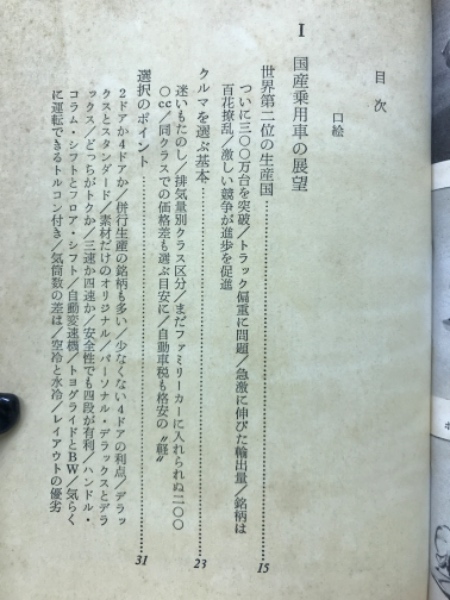 目次
口絵
I 国産乗用車の展望
世界第二位の生産国……15
ついに三〇〇万台を突破/トラック偏重に問題/急激に伸びた輸出量/銘柄は
百花撩乱/激しい競争が進歩を促進
クルマを選ぶ基本……23
迷いもたのし/排気量別クラス区分/まだファミリーカーに入れられぬ二〇〇
〇cc/同クラスでの価格差も選ぶ目安に/自動車税も格安の〝軽〟
選択のポイント……31
2ドアか4ドアか/併行生産の銘柄も多い/少なくない4ドアの利点/デラッ
クスとスタンダード/素材だけのオリジナル/パーソナル・デラックスとデラ
ックス/どっちがトクか/三速か四速か/安全性でも四段が有利/ハンドル・
コラム・シフトとフロア・シフト/自動変速機/トヨグライドとBW/気らく
に運転できるトルコン付き/気筒数の差は/空冷と水冷/レイアウトの優劣